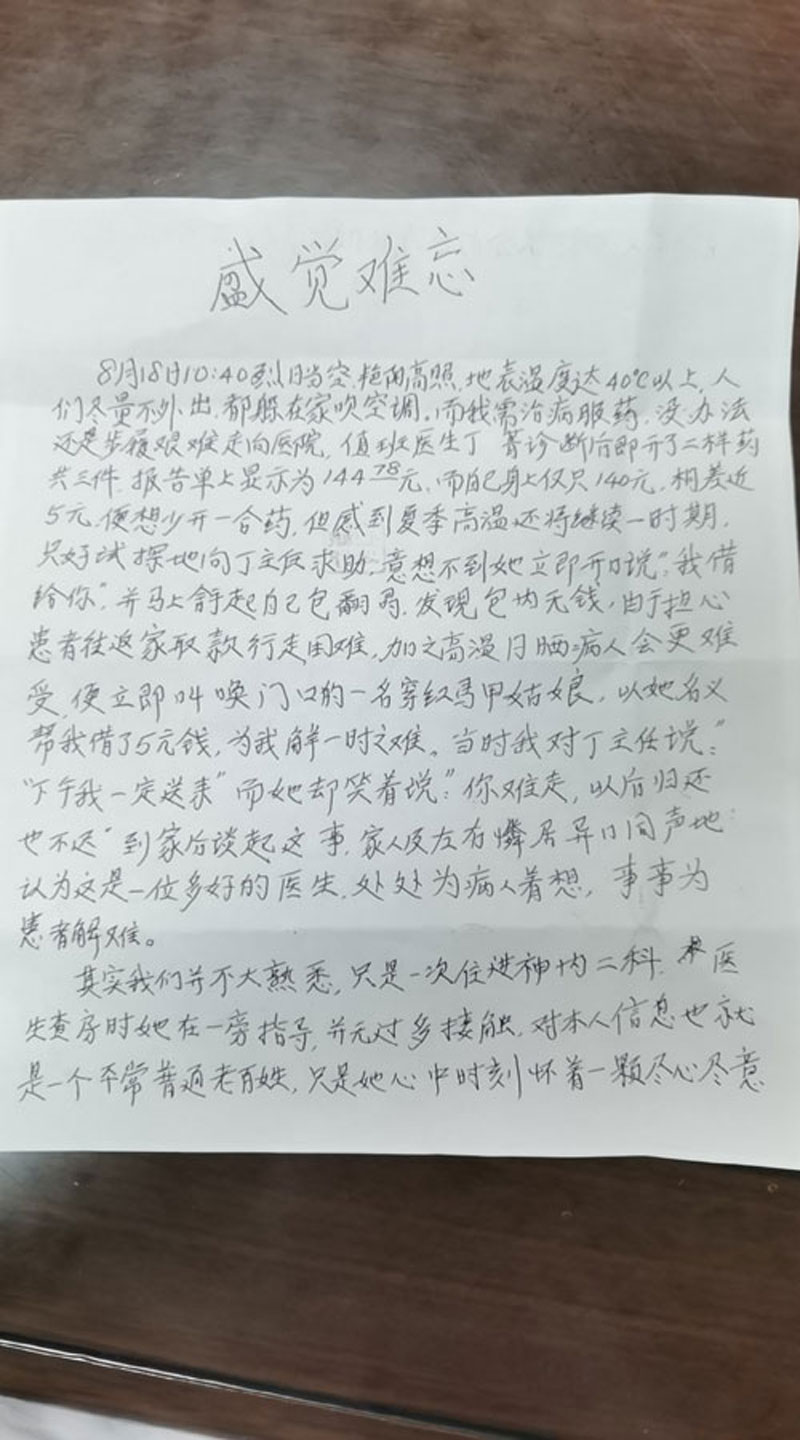 感觉难忘
8月18日10:40烈日当空,艳阳高照,地表温度达40℃以上,人
们尽量不外出,都躲在家吹空调。而我需治病服药,没办法
还是步履艰难走向医院,值班医生丁 菁诊断后即开了二样药
共三件,报告单上显示为144.78元,而自己身上仅只140元,相差近
5元,便想少开一合药,但感到夏季高温还将继续一时期,
只好试探地向丁主任求助,意想不到她立即开口说“我借
给你”,并马上拿起自己包翻寻,发现包内无钱,由于担心
患者往返家取款行走困难,加之高温日晒病人会更难
受,便立即叫唤门口的一名穿红马甲姑娘,以她名义
帮我借了5元钱,为我解一时之难。当时我对丁主任说:“
“下午我一定送来”而她却笑着说:“你难走,以后归还
也不迟”到家后谈起这事,家人及左右憐居异口同声地
认为这是一位多好的医生,处处为病人着想,事事为
患者解难。
其实我们并不大熟悉,只是一次住进神内二科, 医
生查房时她在一旁指导,并无过多接触,对本人信息也就
是一个平常普通老百姓,只是她心中时刻怀着一颗尽心尽意